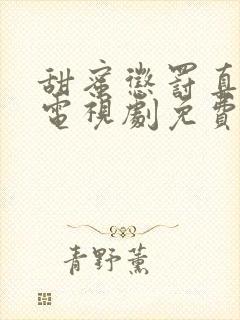 甜蜜懲罰真
電視劇免費
青野薰